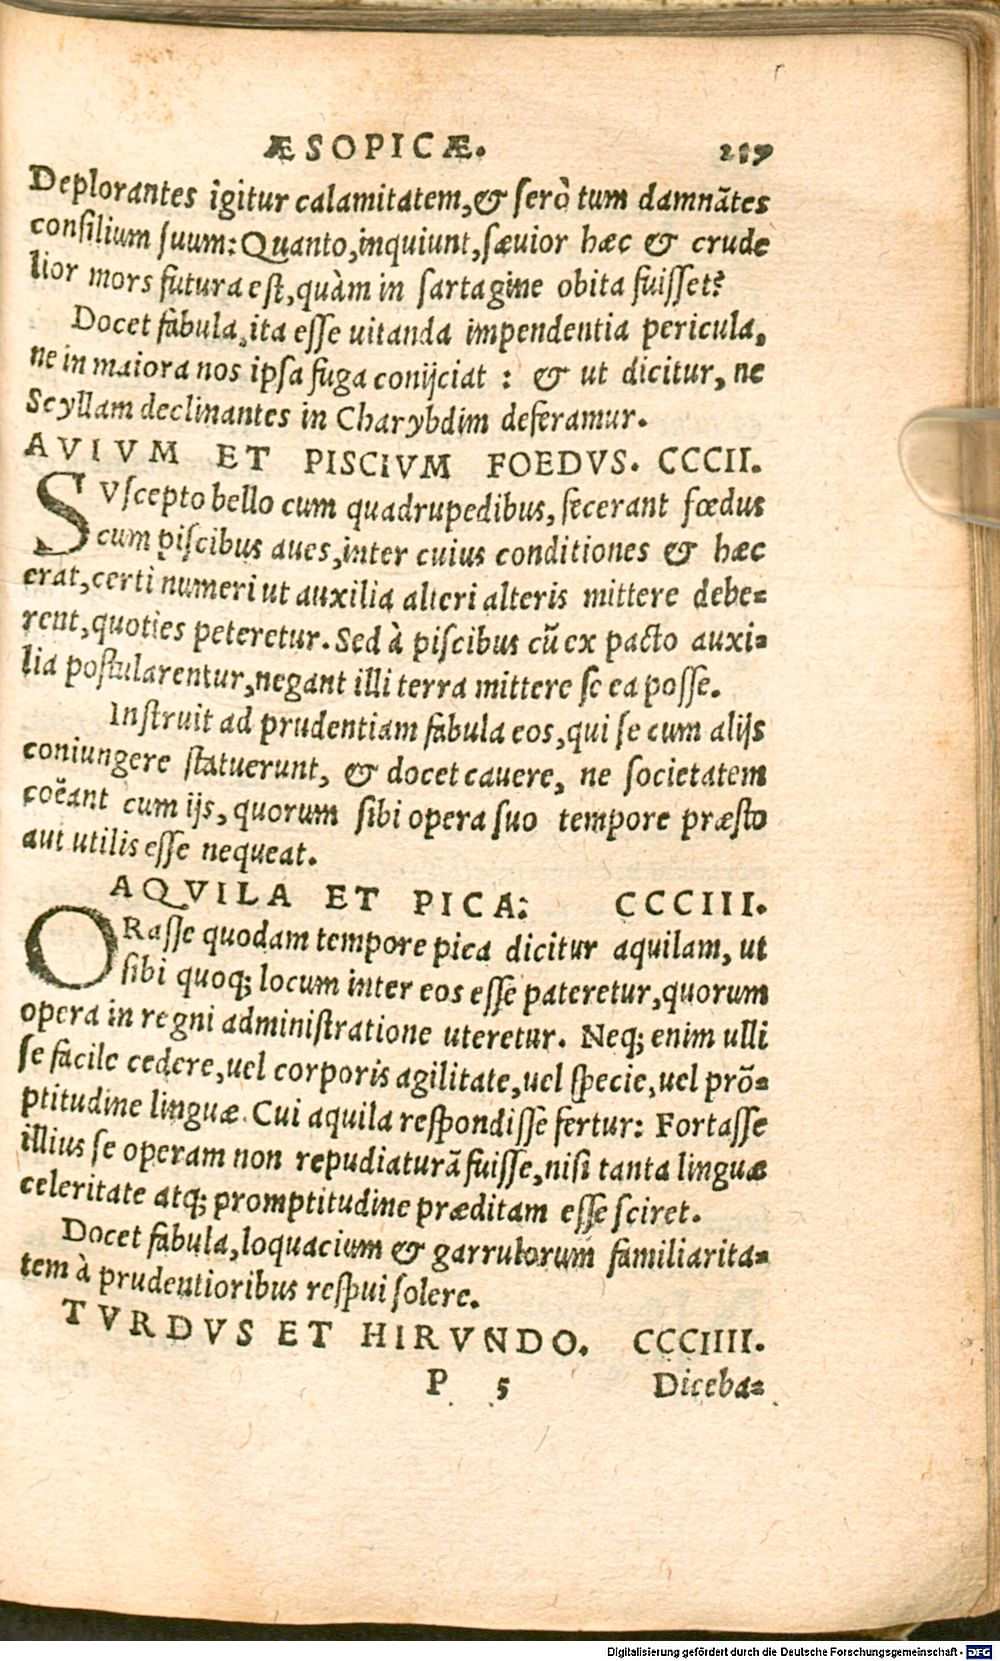 ÆSOPICÆ.
Deplorantes igitur calamitatem,& ſerò tum damnãtes
conſilium ſuum: Quanto,inquiunt,ſævior hæc & crude
lior mors futura eſt,quàm in ſartagine obita fuiſſet?
Docet fabula,ita eſſe uitanda impendentia pericula,
ne in maiora nos ipſa fuga conijciat : & ut dicitur, ne
Scyllam declinantes in Charybdim deferamur.
AVIVM ET PISCIVM FOEDVS. CCCII.
SVſcepto bello cum quadrupedibus, fecerant fœdus
cum piſcibus aues,inter cuius conditiones & hæc
erat,certi numeri ut auxilia alteri alteris mittere debe=
rent,quoties peteretur. Sed à piſcibus cũ ex pacto auxi=
lia poſtularentur,negant illi terra mittere ſe ea poſſe.
Inſtruit ad prudentiam fabula eos,qui ſe cum alijs
coniungere ſtatuerunt, & docet cauere, ne ſocietatem
coẽant cum ijs, quorum ſibi opera ſuo tempore præſto
aut utilis eſſe nequeat.
AQVILA ET PICA: CCCIII.
ORaſſe quodam tempore pica dicitur aquilam, ut
ſibi quoq; locum inter eos eſſe pateretur,quorum
opera in regni adminiſtratione uteretur. Neq; enim ulli
ſe facile cedere,uel corporis agilitate,uel ſpecie,uel prõ=
ptitudine linguæ. Cui aquila reſpondiſſe fertur: Fortaſſe
illius ſe operam non repudiaturã fuiſſe,niſi tanta linguæ
celeritate atq; promptitudine præditam eſſe ſciret.
Docet fabula,loquacium & garrulorum familiarita=
tem à prudentioribus reſpui ſolere.
TVRDVS ET HIRVNDO. CCCIIII.
P 5 Diceba=
Digitalisierung gefördert durch die Deutsche Forschungsgemeinschaft - DFG